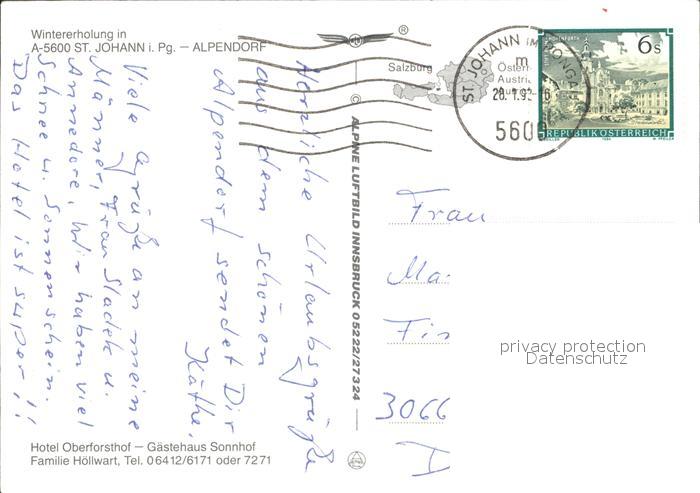 Wintererholung in
A-5600 ST. JOHANN i. Pg. — ALPENDORF
Herzliche Urlaubsgrüße
aus dem schönen
Alpendorf sendet Dir
Käthe.
Viele Grüße an meine
Männer, Frau Sladek u.
Annedore. Wir haben viel
Schnee u. Sonnenschein.
Das Hotel ist super!!
Hotel Oberforsthof — Gästehaus Sonnhof
Familie Höllwart, Tel. 06412/6171 oder 7271
© ALPINE LUFTBILD INNSBRUCK 05222/27324
®
Salzburg
Österr
Austri
ST. JOHANN IM PONGAU
m
28.1.9
5600
6s
REPUBLIK ÖSTERREICH
Frau
Ma
Fis
3066
D
privacy protection
Datenschutz